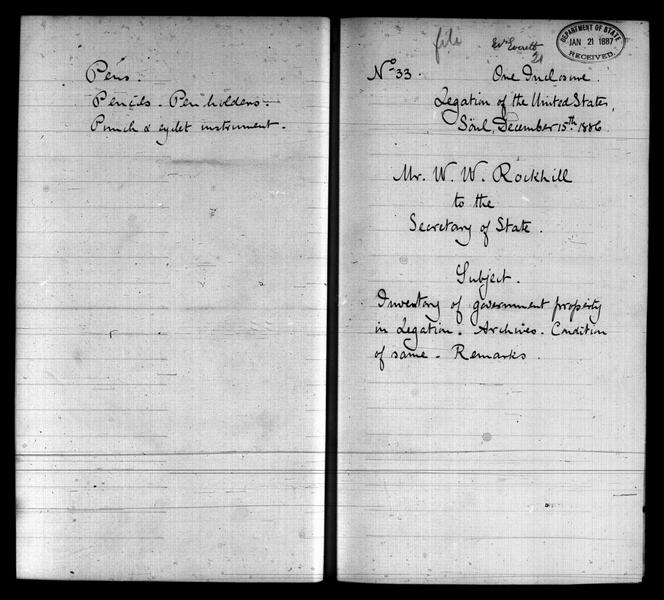 Pens.
Pencils - Pen holders -
Punch & eyelet instrument -
file
Ev Everett
21
DEPARTMENT OF STATE
JAN 21 1887
RECEIVED.
No 33.
One Inclosure.
Legation of the United States,
Söul, December 15th 1886
Mr. W. W. Rockhill
to the
Secretary of State.
Subject.
Inventory of government property
in Legation. Archives. Condition
of same - Remarks.